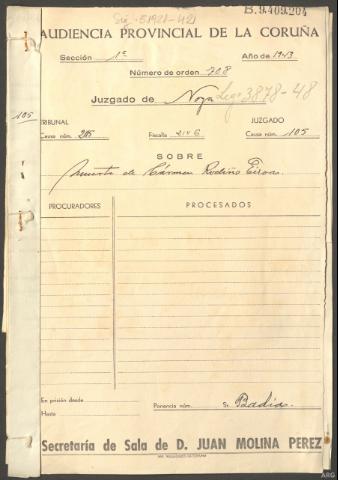 Sig. 51921-42
B.9.409.204
AUDIENCIA PROVINCIAL DE LA CORUÑA
Sección 1ª Año de 1943
Número de orden 708
Juzgado de Noya Leg. 3878-48
105
TRIBUNAL JUZGADO
Causa núm. 285 Fiscalía 2146 Causa núm. 105
SOBRE
Muerte de Cármen Rodiño
PROCURADORES PROCESADOS
En prisión desde
Hasta
Ponencia núm. Sr. Badía.
Secretaría de Sala de D. JUAN MOLINA PEREZ
ARG